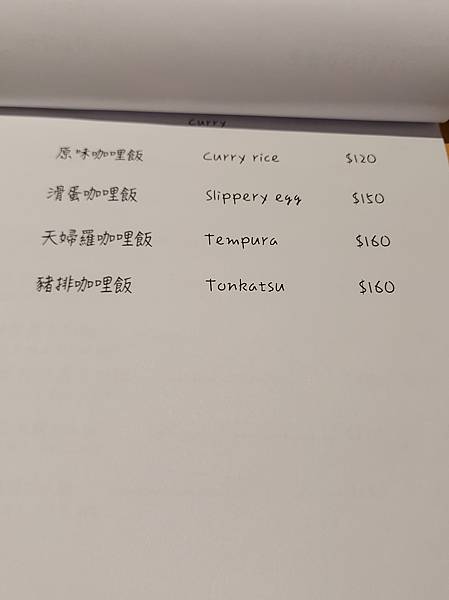 Curry
原味咖哩飯 Curry rice $120
滑蛋咖哩飯 Slippery egg $150
天婦羅咖哩飯 Tempura $160
豬排咖哩飯 Tonkatsu $160